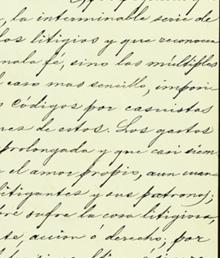 , la interminable serie de
los litigios y que reconoce
mala fe, sino las múltiples
l caso mas sencillo, impon
s códigos por casuistas
nes de estos. Los gastos
prolongada y que casi siem
n el amor propio, aun cuan
litigantes y sus patronos;
re sufre la cosa litigiosa,
te, accion ó derecho; por